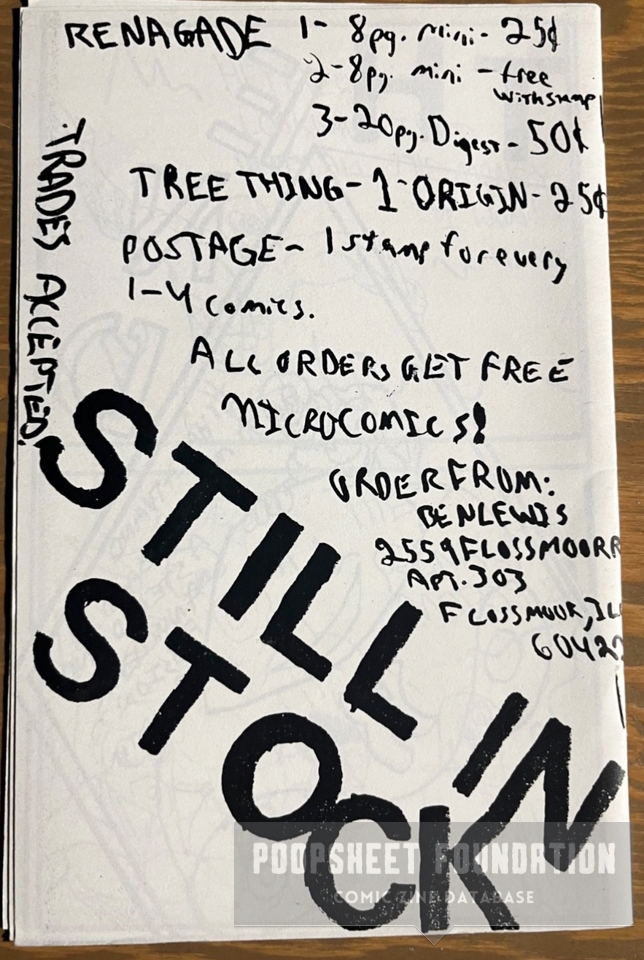 RENAGADE 1- 8pg. mini- 25¢
2-8pg. mini - free
with stamp
3-20pg. Digest- 50¢
TREE THING- 1-ORIGIN- 25¢
POSTAGE- 1 stamp for every
1-4 comics.
ALL ORDERS GET FREE
MICROCOMICS!
TRADES ACCEPTED!
ORDER FROM:
BEN LEWIS
2559 FLOSSMOOR R
APT. 303
FLOSSMOOR, IL
60422
STILL IN
STOCK
POOPSHEET FOUNDATION
COMIC ZINE DATABASE